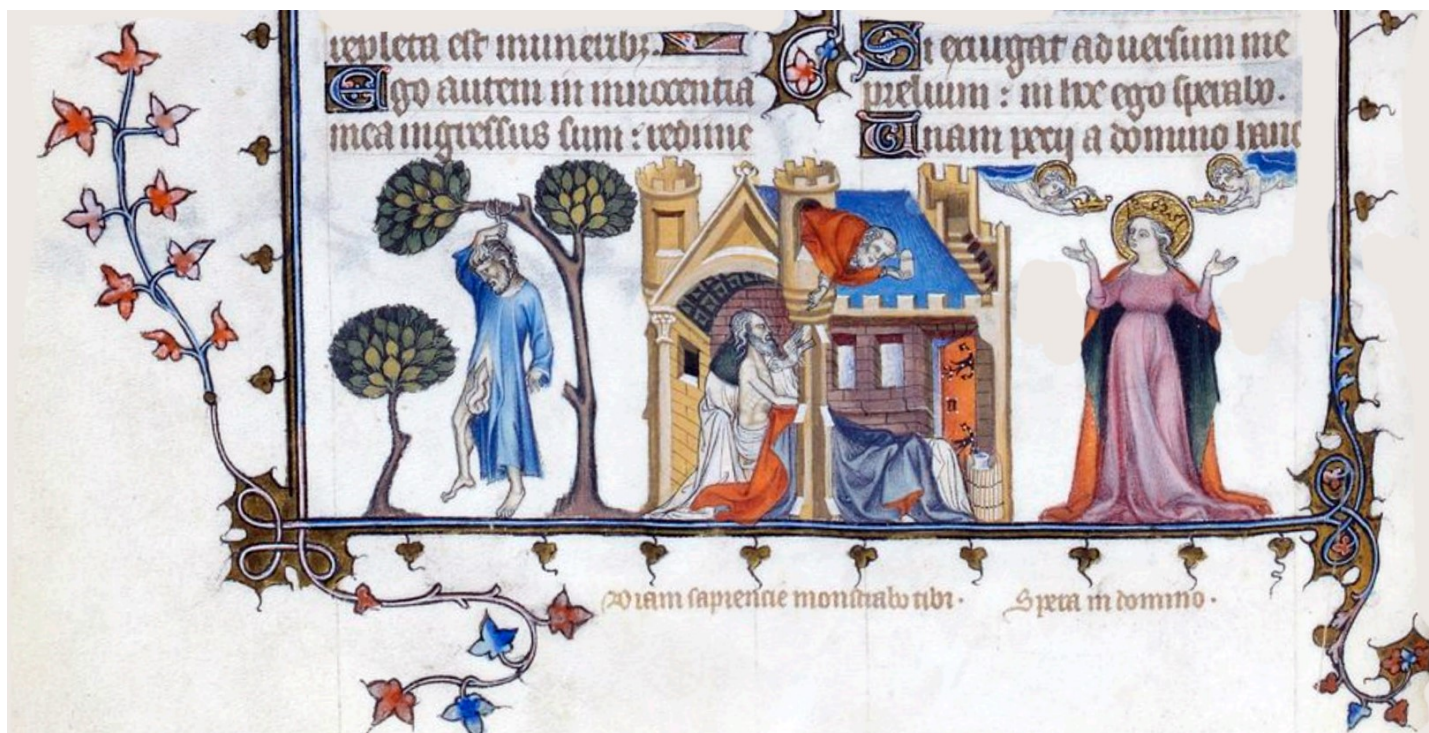 repleta est muneribz.
Ego autem in innocentia
mea ingressus sum : redime
Si exurgat aduersum me
prelium : in hoc ego sperabo.
Unam pecij a domino hanc
Viam sapiencie monstrabo tibi.
Spera in domino.